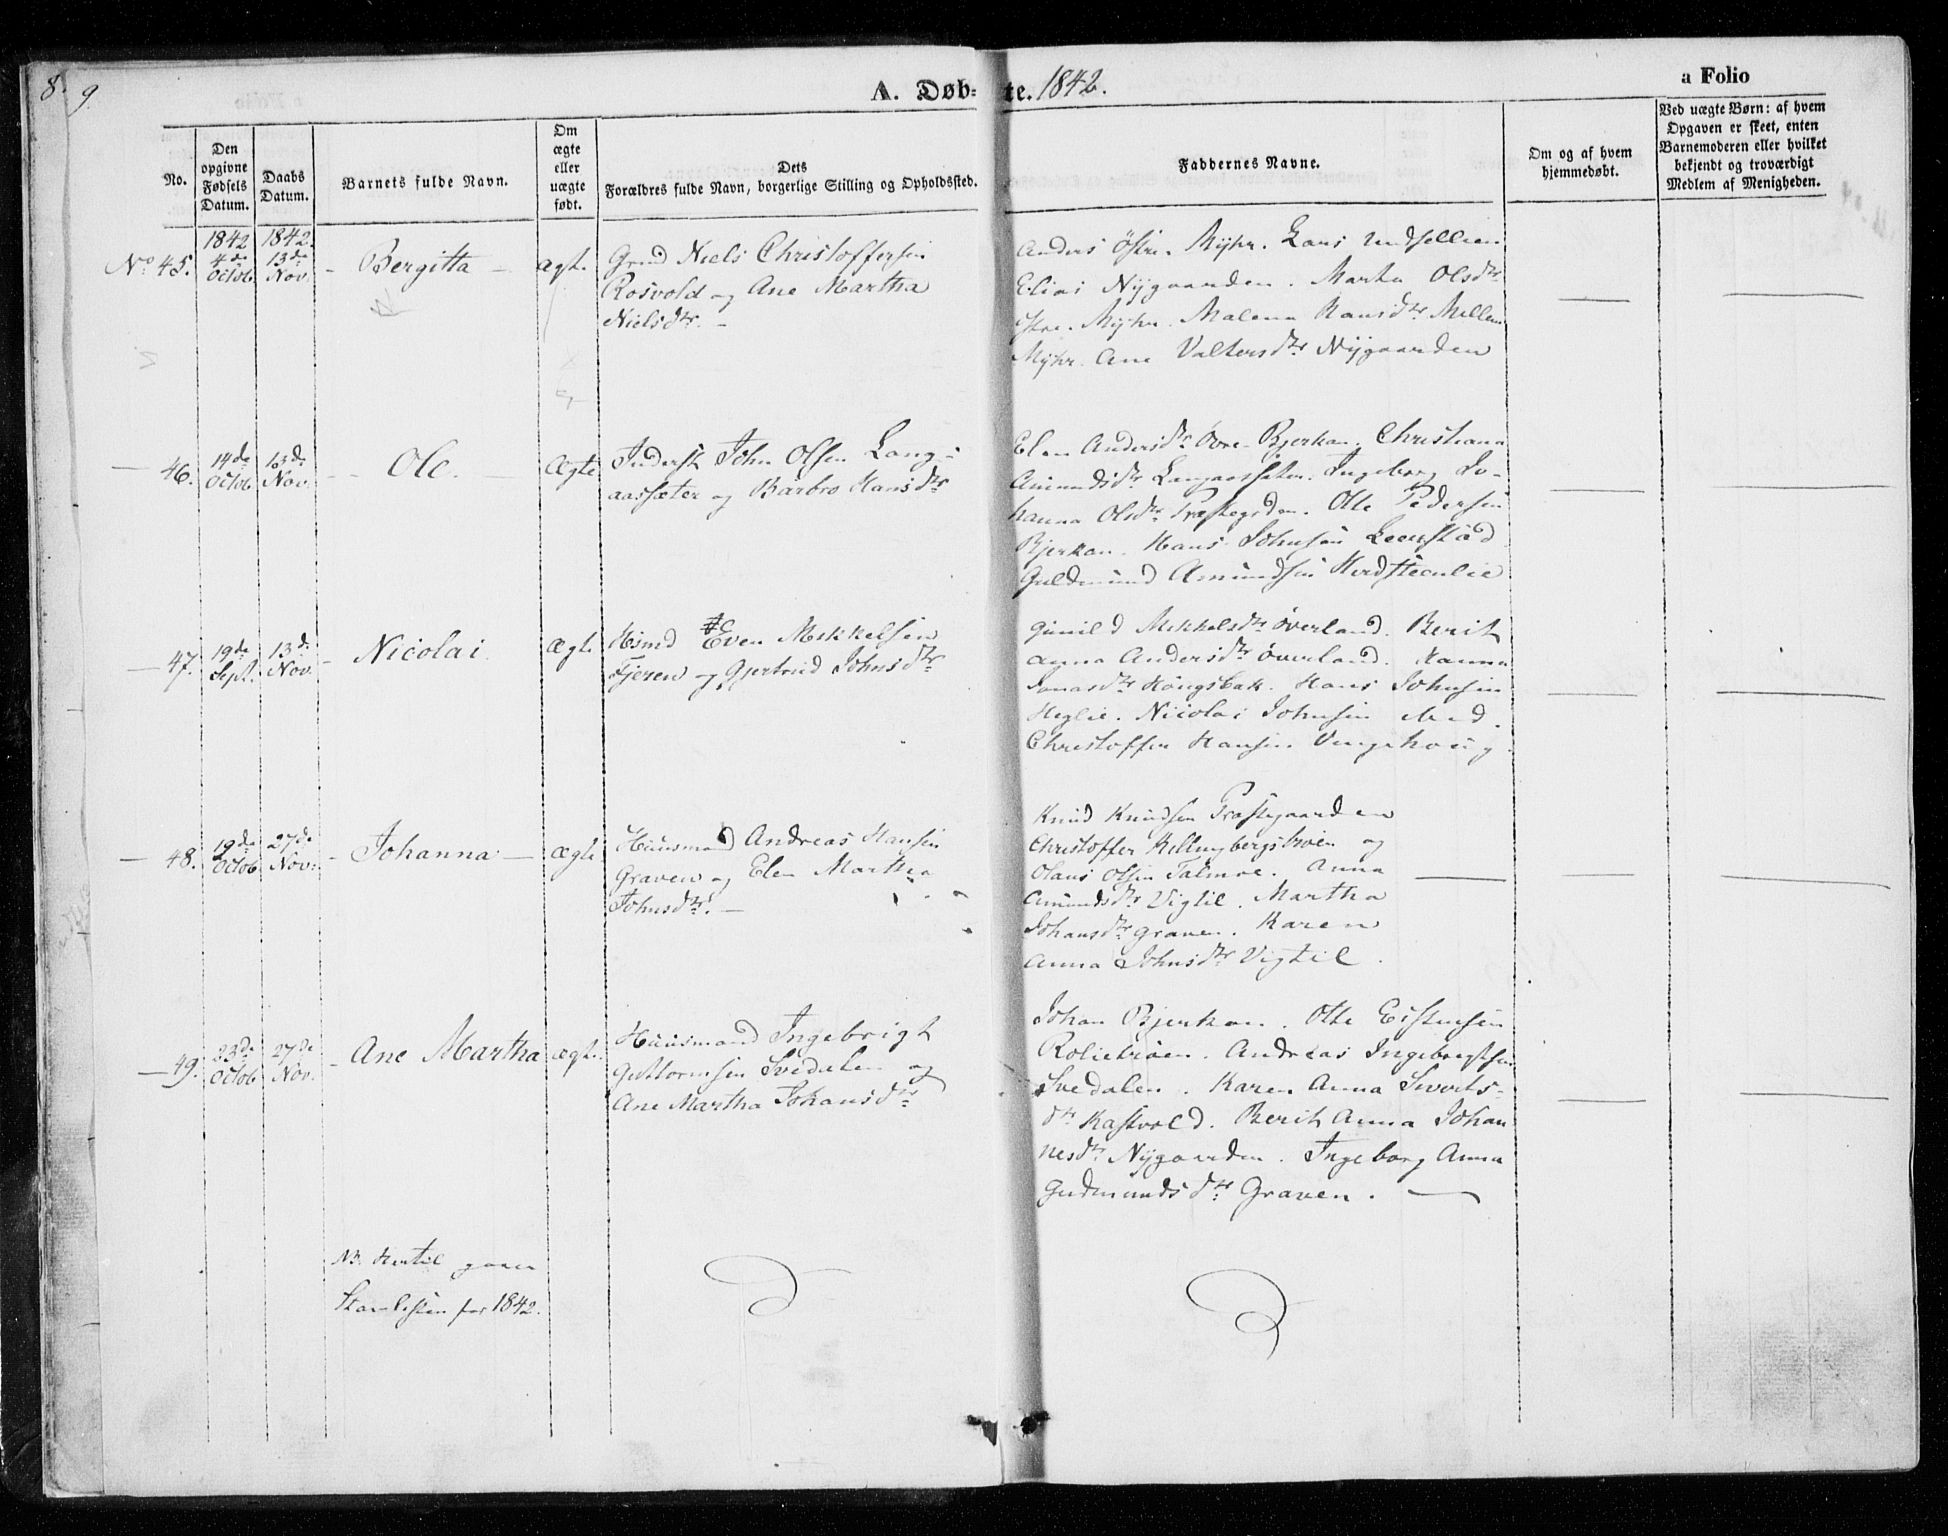 8. 9
A. Døb-te. 1842.
a Folio
No.
Den opgivne Fødsels Datum.
Daabs Datum.
Barnets fulde Navn.
Om ægte eller uægte født.
Dets Forældres fulde Navn, borgerlige Stilling og Opholdssted.
Faddernes Navne.
Om og af hvem hjemmedøbt.
Ved uægte Børn: af hvem Opgaven er skeet, enten Barnemoderen eller hvilket bekjendt og troværdigt Medlem af Menigheden.
No 45.
1842 4de Octob
1842. 13de Nov.
Bergitta
ægt.
Grmd Niels Christoffersen
Rosvold og Ane Martha
Nielsdtr.
Anders Östre Myhr. Lars
Elias Nÿgaarden. Marta Olsdtr
Östre. Mÿhr. Malena Hansdtr Mellem
Mÿhr. Ane Valtersdtr Nÿgaarden
46.
14de Octob
13de Nov.
Ole.
Ægte
Inderst John Olsen Lang-
aassæter og Barbro Hansdtr
Elen Andersdtr Övre Bjerkan. Christiana
Amundsdtr Langaassæter. Ingeborg Jo-
hanna Olsdtr Præstegrden. Otte Pedersen
Bjerkan. Hans Johnsen Leenstad
Guldmund Amundsen
47.
19de Sept.
13de Nov.
Nicolai
Ægte
Hsmd Even Mikkelsen
Fjeren og Gjertrud Johnsdtr
Gunild Mikkelsdtr Överland. Berit
Anna Andersdtr Överland. Hanna
Jonasdtr Höugsbak. Hans Johnsen
Heglie. Nicolai Johnsen
Christoffer Hansen Vengehoug
48.
19de Octob
27de Nov.
Johanna
Ægte
Huusmand Andreas Hansen
Graven og Elen Martha
Johnsdtr.
Knud Knudsen Præstegaarden
Christoffer Killingbergströen og
Olaus Olsen Talmoe. Anna
Amundsdtr Vigtil. Martha
Johansdtr Graven. Karen
Anna Johnsdtr Vigtil.
49.
23de Octob
27de Nov.
Ane Martha
ægt.
Huusmand Ingebrigt
Guttormsen Svedalen og
Ane Martha Johansdtr
Johan Bjerkan. Otte Eistensen
Rolietröen. Andreas Ingebrigtsen
Svedalen. Karen Anna Siverts-
dtr Kastvold. Berit Anna Johan
nesdtr Nÿgaarden. Ingeborg Anna
Gudmundsdtr Graven.
NB. Hertil gaaer
Skatlisten for 1842.